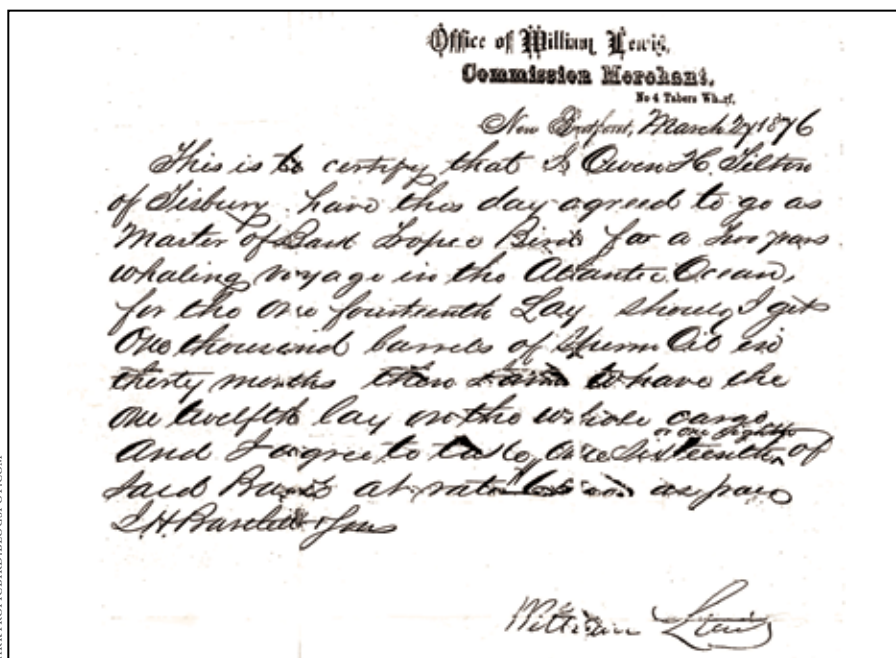 Office of William Lewis,
Commission Merchant,
No 4 Tabers Wharf,
New Bedford, March 27 1876
This is to certify that I Owen H. Tilton
of Tisbury have this day agreed to go as
Master of Bark Tropic Bird for a two years
whaling voyage in the Atlantic Ocean,
for the one fourteenth Lay should I get
One thousand barrels of Sperm Oil in
thirty months then I am to have the
one twelfth lay on the whole cargo
or one eighth
And I agree to take One Sixteenth of
Said Bark at rate as paid
I. H. Bartlett & Sons
William Lewis